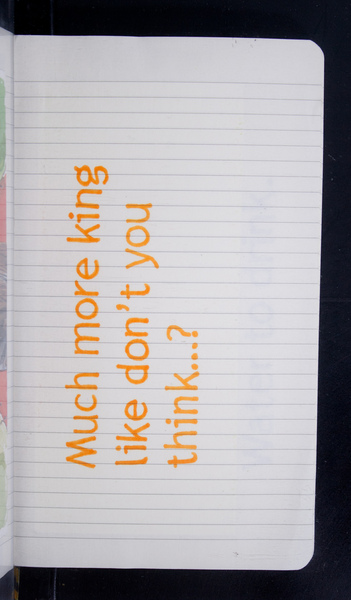 Much more king
like don't you
think...?